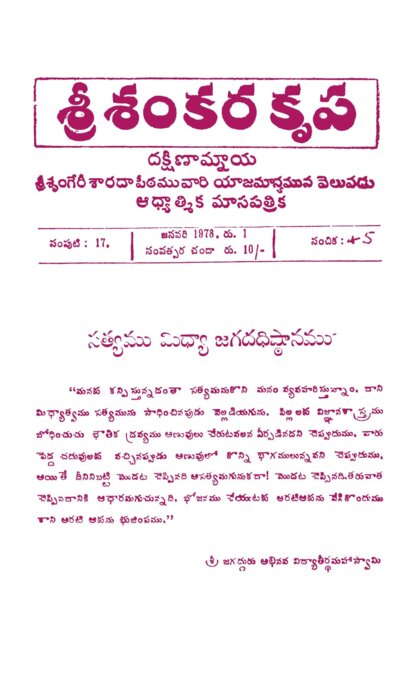 శ్రీ శంకర కృప
దక్షిణామ్నాయ
శ్రీ శృంగేరీ శారదాపీఠమువారి యాజమాన్యమున వెలువడు
ఆధ్యాత్మిక మాసపత్రిక
సంపుటి : 17.
జనవరి 1978, రు. 1
సంవత్సర చందా రు. 10/-
సంచిక :
సత్యము మిధ్యా జగదధిష్ఠానము
“మనకు కన్పిస్తున్నదంతా సత్యమనుకొని మనం వ్యవహరిస్తున్నాం. దాని
మిధ్యాత్వము సత్యమును సాధించినపుడు వెల్లడియగును. పిల్లలకు విజ్ఞానశాస్త్రము
బోధించుచు భౌతిక ద్రవ్యము అణువులు చేరుటవలన ఏర్పడినదని చెప్పుదుము. వారు
పెద్ద చదువులకు వచ్చినప్పుడు అణువులో కొన్ని భాగములున్నవని చెప్పుదుము.
అయితే దీనినిబట్టి మొదట చెప్పినది అసత్యమగునుకదా! మొదట చెప్పినది-తరువాత
చెప్పినదానికి ఆధారమగుచున్నది. భోజనము చేయుటకు అరటిఆకును వేసికొందుము
కాని అరటి ఆకును భుజింపము.’’
శ్రీ జగద్గురు అభినవ విద్యాతీర్థమహాస్వామి